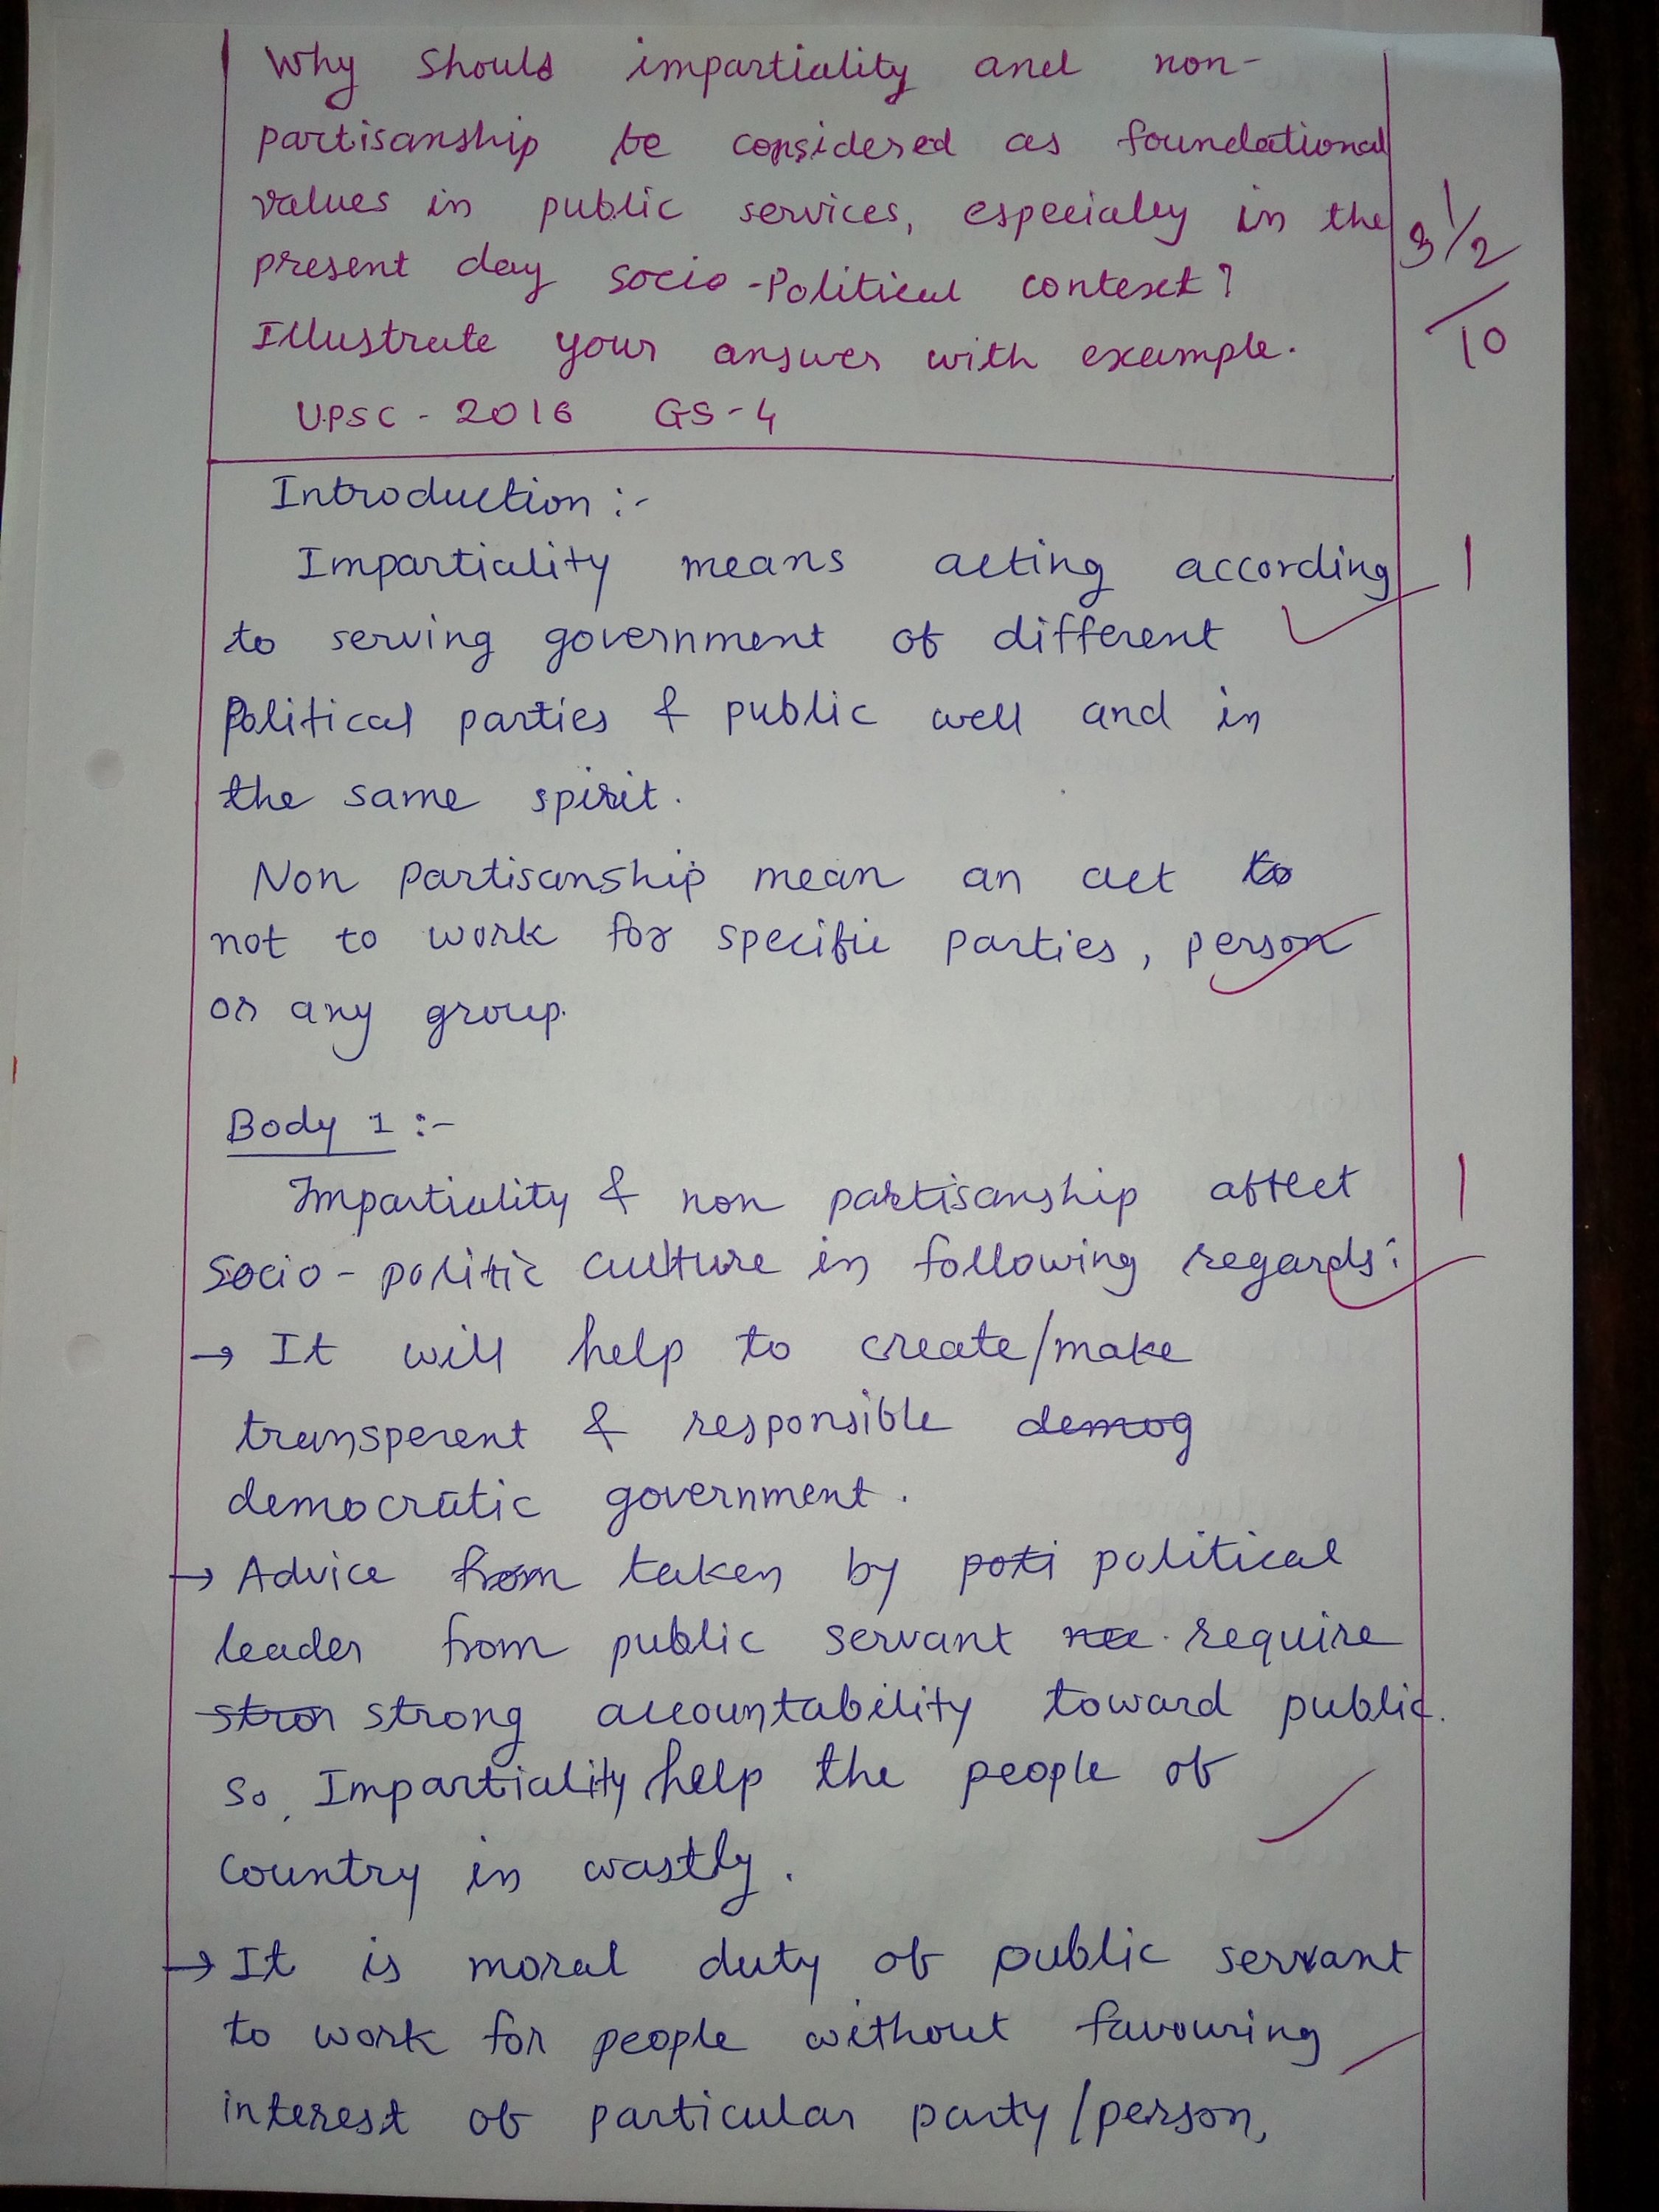 Why Should impartiality and non-
partisanship be considered as foundational
values in public services, especially in the
present day socio-Political context?
Illustrate your answer with example.
UPSC - 2016 GS-4
3 1/2
10
Introduction :-
Impartiality means acting according
1
to serving government of different
Political parties & public well and in
the same spirit.
Non Partisanship mean an act to
not to work for specific parties, person
or any group.
Body 1 :-
Impartiality & non partisanship affect
1
Socio-politic culture in following regards:
→ It will help to create/make
transperent & responsible demog
democratic government.
→ Advice from taken by poti political
leader from public servant require
stron strong accountability toward public.
So, Impartiality help the people of
country in wastly.
→ It is moral duty of public servant
to work for people without favouring
interest of particular party/person,